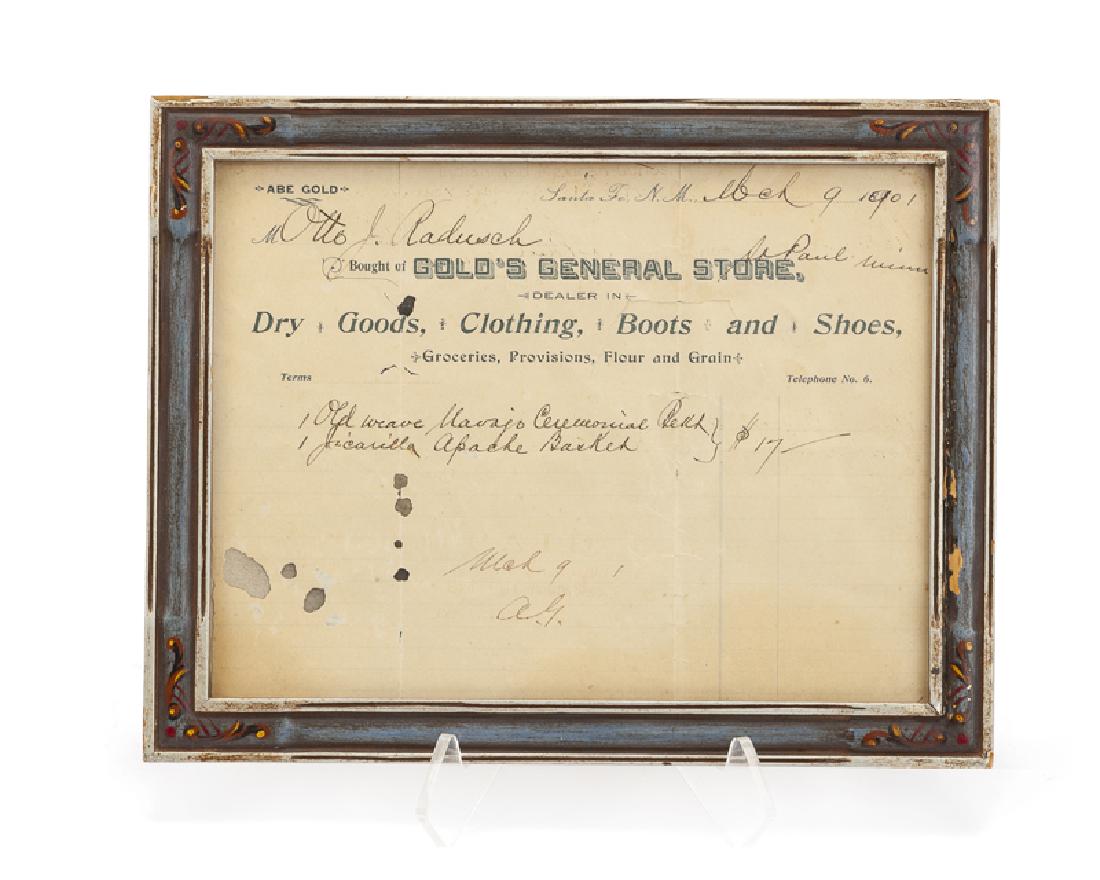 ABE GOLD
Santa Fe, N. M., Mch 9 1901
M Otto J. Radusch
St Paul Minn
Bought of GOLD'S GENERAL STORE,
DEALER IN
Dry Goods, Clothing, Boots and Shoes,
Groceries, Provisions, Flour and Grain
Terms Telephone No. 6.
1 Old weave Navajo Ceremonial Belt
1 Jicarilla Apache Basket } $ 17
Mch 9 1
A.G.